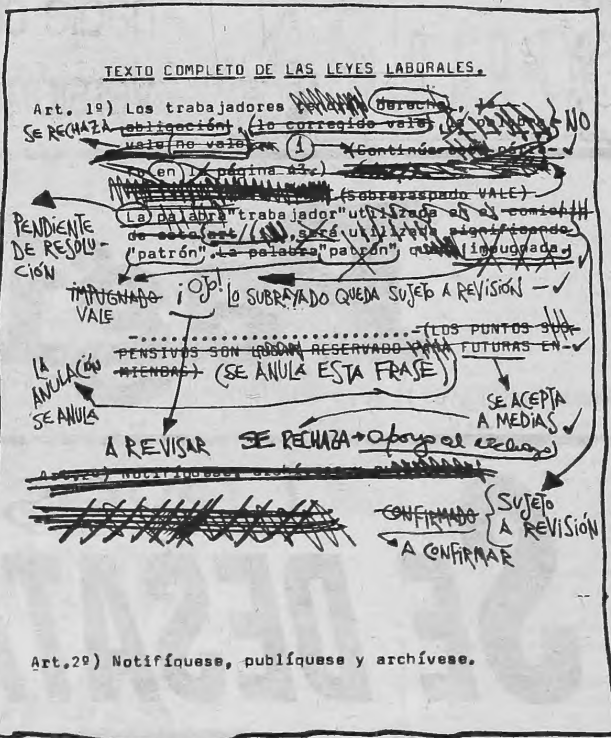 TEXTO COMPLETO DE LAS LEYES LABORALES.
Art. 1º) Los trabajadores derecho
SE RECHAZA obligación (lo corregido vale NO
vale no vale 1 (Continúa
en la página 43.)
(Sobreraspado VALE)
La palabra "trabajador" utilizada en el
de este art será utilizada significando
"patrón". La palabra "patrón" impugnada.
PENDIENTE
DE RESOLU-
CIÓN
IMPUGNADO
VALE
¡OJO! LO SUBRAYADO QUEDA SUJETO A REVISIÓN
(LOS PUNTOS SUS-
PENSIVOS SON RESERVADO PARA FUTURAS EN-
MIENDAS) (SE ANULA ESTA FRASE)
LA
ANULACIÓN
SE ANULA
SE ACEPTA
A MEDIAS
A REVISAR SE RECHAZA apoyo al rechazo
Art. 2º) Notifíquese,
CONFIRMADO SUJETO
A REVISIÓN
A CONFIRMAR
Art.2º) Notifíquese, publíquese y archívese.
SE DESA